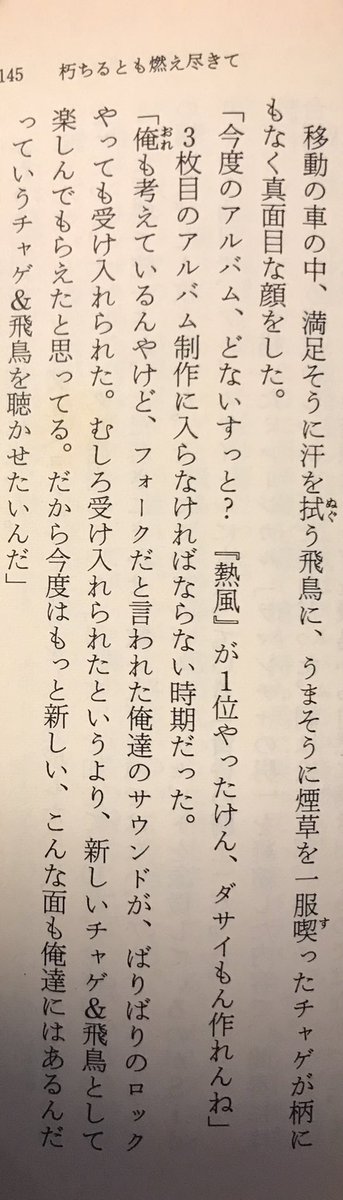 145　朽ちるとも燃え尽きて
　移動の車の中、満足そうに汗を拭う飛鳥に、うまそうに煙草を一服喫ったチャゲが柄に
もなく真面目な顔をした。
「今度のアルバム、どないすっと？　『熱風』が1位やったけん、ダサイもん作れんね」
　3枚目のアルバム制作に入らなければならない時期だった。
「俺も考えているんやけど、フォークだと言われた俺達のサウンドが、ばりばりのロック
やっても受け入れられた。むしろ受け入れられたというより、新しいチャゲ&飛鳥として
楽しんでもらえたと思ってる。だから今度はもっと新しい、こんな面も俺達にはあるんだ
っていうチャゲ&飛鳥を聴かせたいんだ」